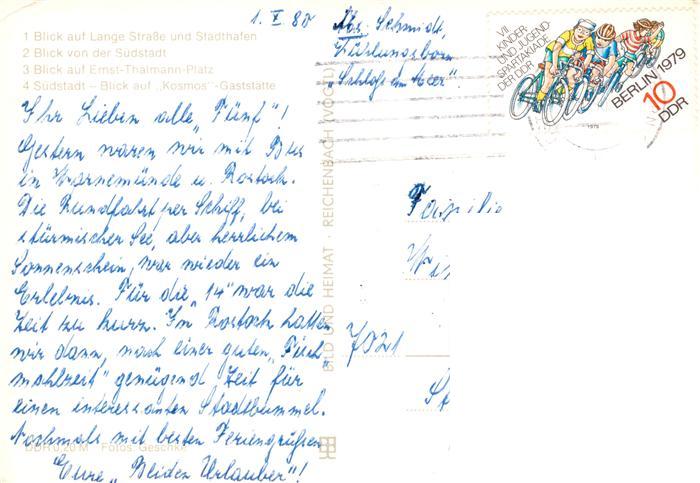 1. X. 80
1 Blick auf Lange Straße und Stadthafen
2 Blick von der Südstadt
3 Blick auf Ernst-Thälmann-Platz
4 Südstadt – Blick auf „Kosmos"-Gaststätte
Ihr Lieben alle „Fünf"!
Gestern waren wir mit Bus
in Warnemünde u. Rostock.
Die Rundfahrt per Schiff, bei
stürmischer See, aber herrlichem
Sonnenschein, war wieder ein
Erlebnis. Für die „14" war die
Zeit zu kurz. In Rostock hatten
wir dann, nach einer guten „Fisch
mahlzeit" genügend Zeit für
einen interessanten Stadtbummel.
Nochmals mit besten Feriengrüßen
Eure „Beiden Urlauber"!
DDR 0,20 M Fotos: Geschke
BILD UND HEIMAT · REICHENBACH (VOGTL)
Abs. Schmidt,
Kühlungsborn
„Schloß am Meer".
VII.
KINDER-
UND JUGEND-
SPARTAKIADE
DER DDR
BERLIN 1979
10
DDR
1979
Familie
7021